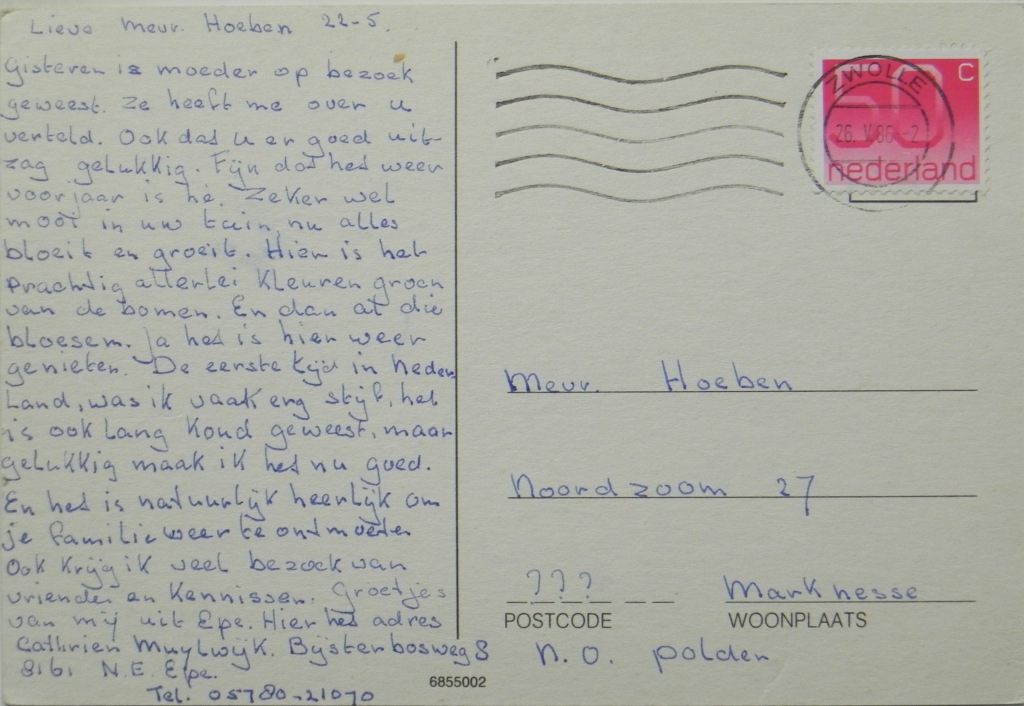 Lieve Mevr. Hoeben 22-5.
Gisteren is moeder op bezoek
geweest. Ze heeft me over u
verteld. Ook dat u er goed uit-
zag gelukkig. Fijn dat het weer
voorjaar is hè. Zeker wel
mooi in uw tuin, nu alles
bloeit en groeit. Hier is het
prachtig allerlei kleuren groen
van de bomen. En dan al die
bloesem. Ja het is hier weer
genieten. De eerste tijd in Neder-
land, was ik vaak erg stijf, het
is ook lang koud geweest, maar
gelukkig maak ik het nu goed.
En het is natuurlijk heerlijk om
je familie weer te ontmoeten
Ook krijg ik veel bezoek van
vrienden en kennissen. Groetjes
van mij uit Epe. Hier het adres
Cathrien Muylwijk. Bijsterbosweg 8
8161 N.E. Epe.
Tel. 05780-21070
6855002
ZWOLLE
26. V.86.-2
50 C
nederland
Mevr. Hoeben
Noordzoom 27
??? Marknesse
POSTCODE WOONPLAATS
N.O. polder